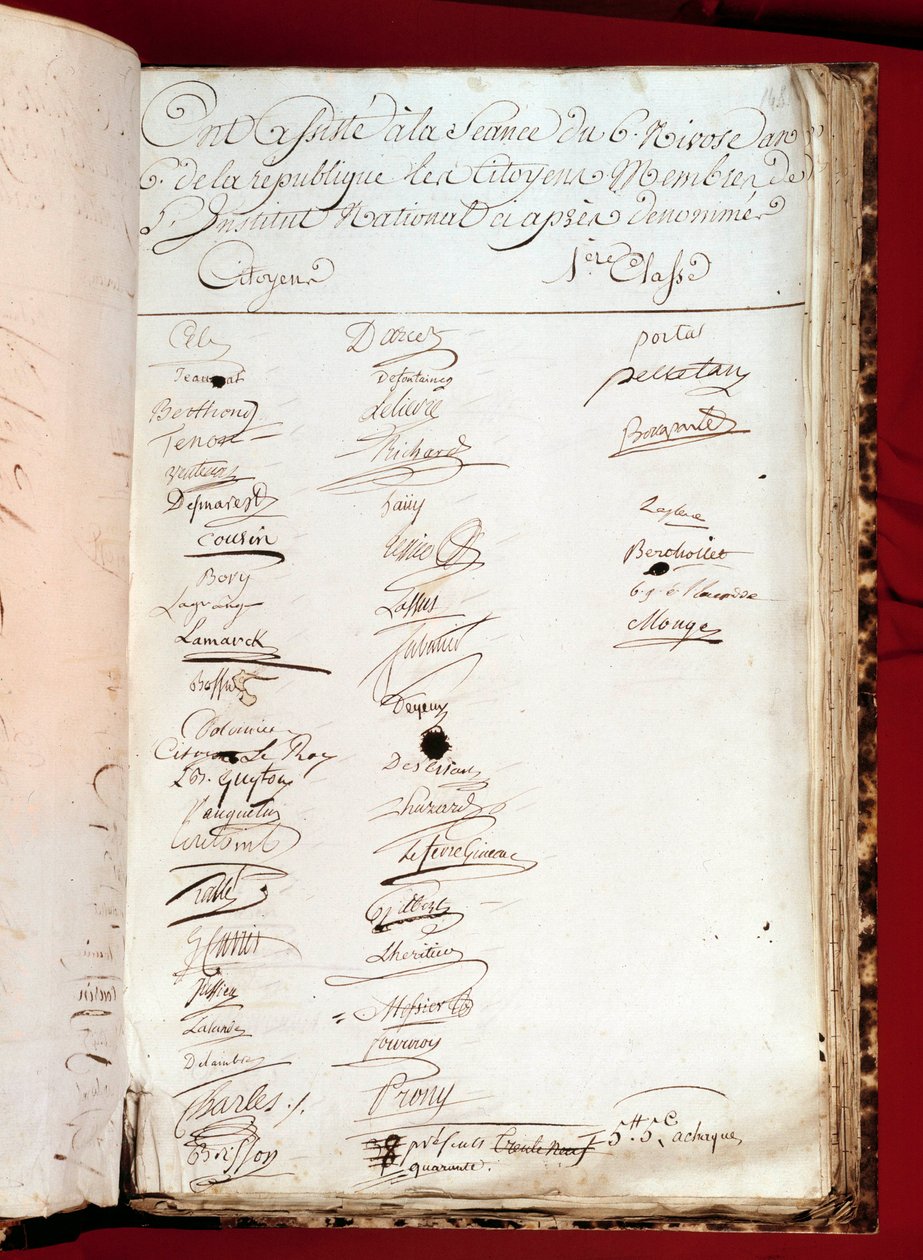 Ont assisté à la Séance du 6. Nivose an
6. de la republique les Citoyens Membres de
L'Institut National ci après denommés
Citoyens 1ère Classe
Cels
Jeaurat
Berthoud
Tenon
Ventenat
Desmarest
Cousin
Bory
Lagrange
Lamarck
Bossut
Dolomieu
Citoyen Le Roy
L. B. Guyton
Vauquelin
Coulomb
hallé
G Cuvier
Jussieu
Lalande
Delambre
Charles
Brisson
Darcet
Desfontaines
Lelievre
Richard
haüy
Lassus
Sabatier
Deyeux
Desessarts
huzard
Lefevre Gineau
Lheritier
Messier
fourcroy
Prony
38 présents trente neuf
quarante.
portal
pelletan
Bonaparte
Berthollet
Monge
5tt. 5c a chaque